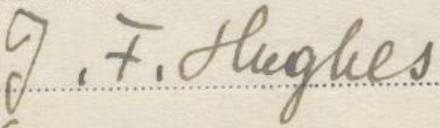 J. F. Hughes